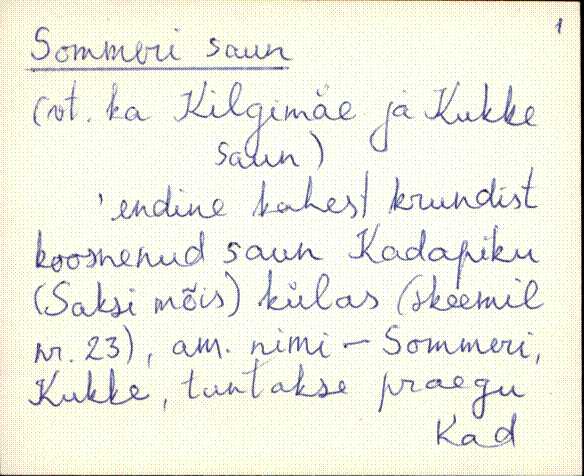 1
Sommeri saun
(vt. ka Kilgimäe ja Kukke
saun)
'endine kahest krundist
koosnenud saun Kadapiku
(Saksi mõis) külas (skeemil
nr. 23), am. nimi - Sommeri,
Kukke, tuntakse praegu
Kad